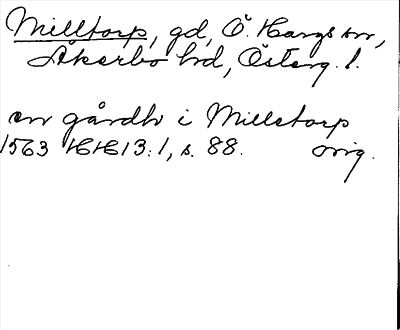 Milltorp, gd, Ö. Hargs sn,
Åkerbo hd, Österg. l.
en gårdh i Milletorp
1563 HH 13:1, s. 88. orig.